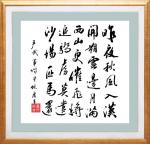 昨夜秋風入漢
關朔雲邊月滿
西山更催飛將
追驕虜莫遣
沙場匹馬還